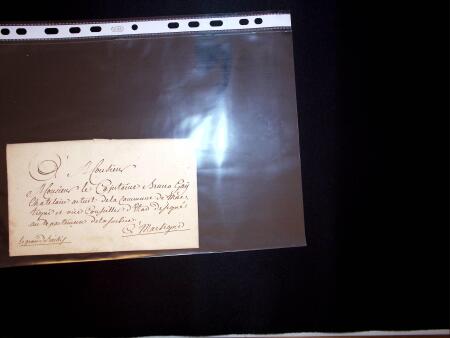 A Monsieur
Monsieur le Capitaine Bruno Gay
Chatelain actuel de la Commune de Mar-
tigni et vice Conseiller d'Etat designé
au departement de la Justice.
à Martigni